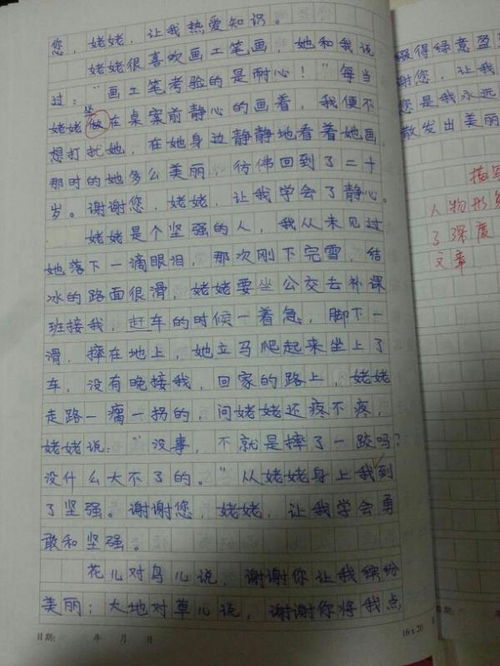 您，姥姥，让我热爱知识。
姥姥很喜欢画工笔画，她和我说
过：“画工笔考验的是耐心！”每当
坐
姥姥做在桌案前静心的画着，我便不
想打扰她，在她身边静静地看着她画，
那时的她多么美丽，仿佛回到了二十
岁。谢谢您，姥姥，让我学会了静心。
姥姥是个坚强的人，我从未见过
她落下一滴眼泪，那次刚下完雪，结
冰的路面很滑，姥姥要坐公交去补课
班接我，赶车的时候一着急，脚下一
滑，摔在地上，她立马爬起来坐上了
车，没有晚接我，回家的路上，姥姥
走路一瘸一拐的，问姥姥还疼不疼，
姥姥说：“没事，不就是摔了一跤吗？
没什么大不了的。”从姥姥身上我到
了坚强。谢谢您，姥姥，让我学会勇
敢和坚强。
花儿对鸟儿说，谢谢你让我缤纷
美丽；大地对草儿说，谢谢你将我点
日期： 年 月 日
16×20
得绿意盈
谢您，让我
您是我永远
散发出美丽
描写
人物形象
了深度
文章